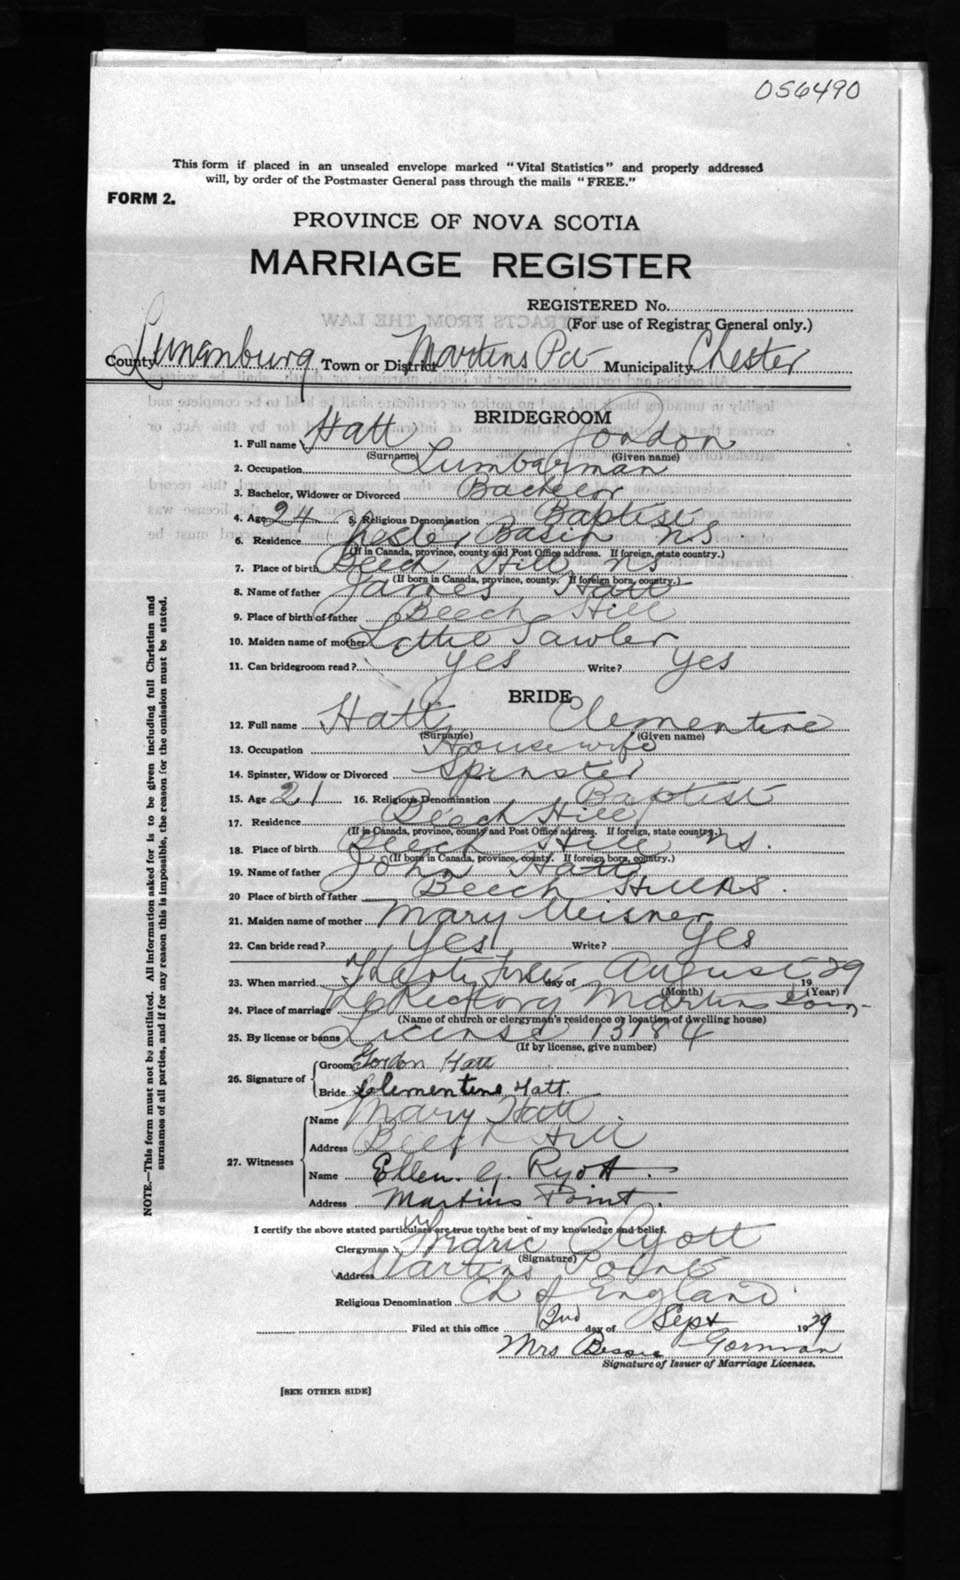 056490
This form if placed in an unsealed envelope marked "Vital Statistics" and properly addressed
will, by order of the Postmaster General pass through the mails "FREE."
FORM 2.
PROVINCE OF NOVA SCOTIA
MARRIAGE REGISTER
REGISTERED No.
(For use of Registrar General only.)
County Lunenburg Town or District Martins Pt Municipality Chester
BRIDEGROOM
1. Full name Hatt Gordon
(Surname) (Given name)
2. Occupation Lumberman
3. Bachelor, Widower or Divorced Bachelor
4. Age 24 5. Religious Denomination Baptist
6. Residence Chester Basin N.S.
(If in Canada, province, county and Post Office address. If foreign, state country.)
7. Place of birth Beech Hill NS
(If born in Canada, province, county. If foreign born, country.)
8. Name of father James Hatt
9. Place of birth of father Beech Hill
10. Maiden name of mother Lottie Sawler
11. Can bridegroom read? Yes Write? Yes
BRIDE
12. Full name Hatt Clementine
(Surname) (Given name)
13. Occupation Housewife
14. Spinster, Widow or Divorced Spinster
15. Age 21 16. Religious Denomination Baptist
17. Residence Beech Hill
(If in Canada, province, county and Post Office address. If foreign, state country.)
18. Place of birth Beech Hill NS.
(If born in Canada, province, county. If foreign born, country.)
19. Name of father John Hatt
20 Place of birth of father Beech Hill NS.
21. Maiden name of mother Mary Meisner
22. Can bride read? Yes Write? Yes
23. When married Thirty First day of August 1929
(Month) (Year)
24. Place of marriage Rectory Martins Point
(Name of church or clergyman's residence or location of dwelling house)
25. By license or banns License 13184
(If by license, give number)
26. Signature of
Groom Gordon Hatt
Bride Clementine Hatt.
27. Witnesses
Name Mary Hatt
Address Beech Hill
Name Ellen. G. Ryott.
Address Martins Point.
I certify the above stated particulars are true to the best of my knowledge and belief.
Clergyman Ryott
(Signature)
Address Martins Point
Religious Denomination Ch of England
Filed at this office 2nd day of Sept 1929
Mrs Bessie Gorman
Signature of Issuer of Marriage Licenses.
[SEE OTHER SIDE]
NOTE.—This form must not be mutilated. All information asked for is to be given including full Christian and
surnames of all parties, and if for any reason this is impossible, the reason for the omission must be stated.